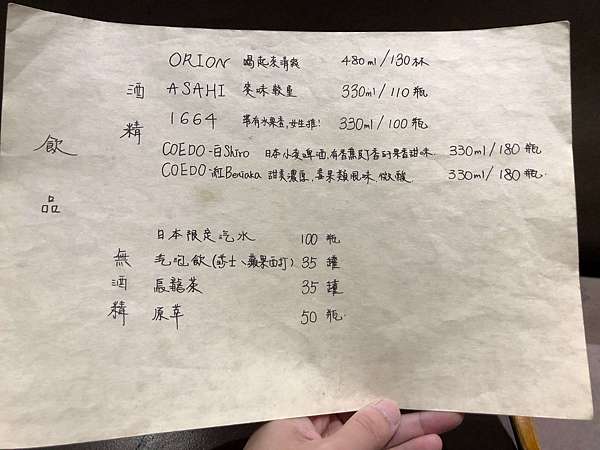 飲品
酒精
ORION 喝起來清爽 480ml/130杯
ASAHI 麥味較重 330ml/110瓶
1664 帶有水果香,女生推! 330ml/100瓶
COEDO-白Shiro 日本小麥啤酒,有香蕉訂香的果香甜味. 330ml/180瓶
COEDO-紅Beniaka 甜美濃厚,莓果類風味,微酸. 330ml/180瓶
無酒精
日本限定汽水 100瓶
汽泡飲(芬士、蘋果西打) 35罐
烏龍茶 35罐
原萃 50瓶.